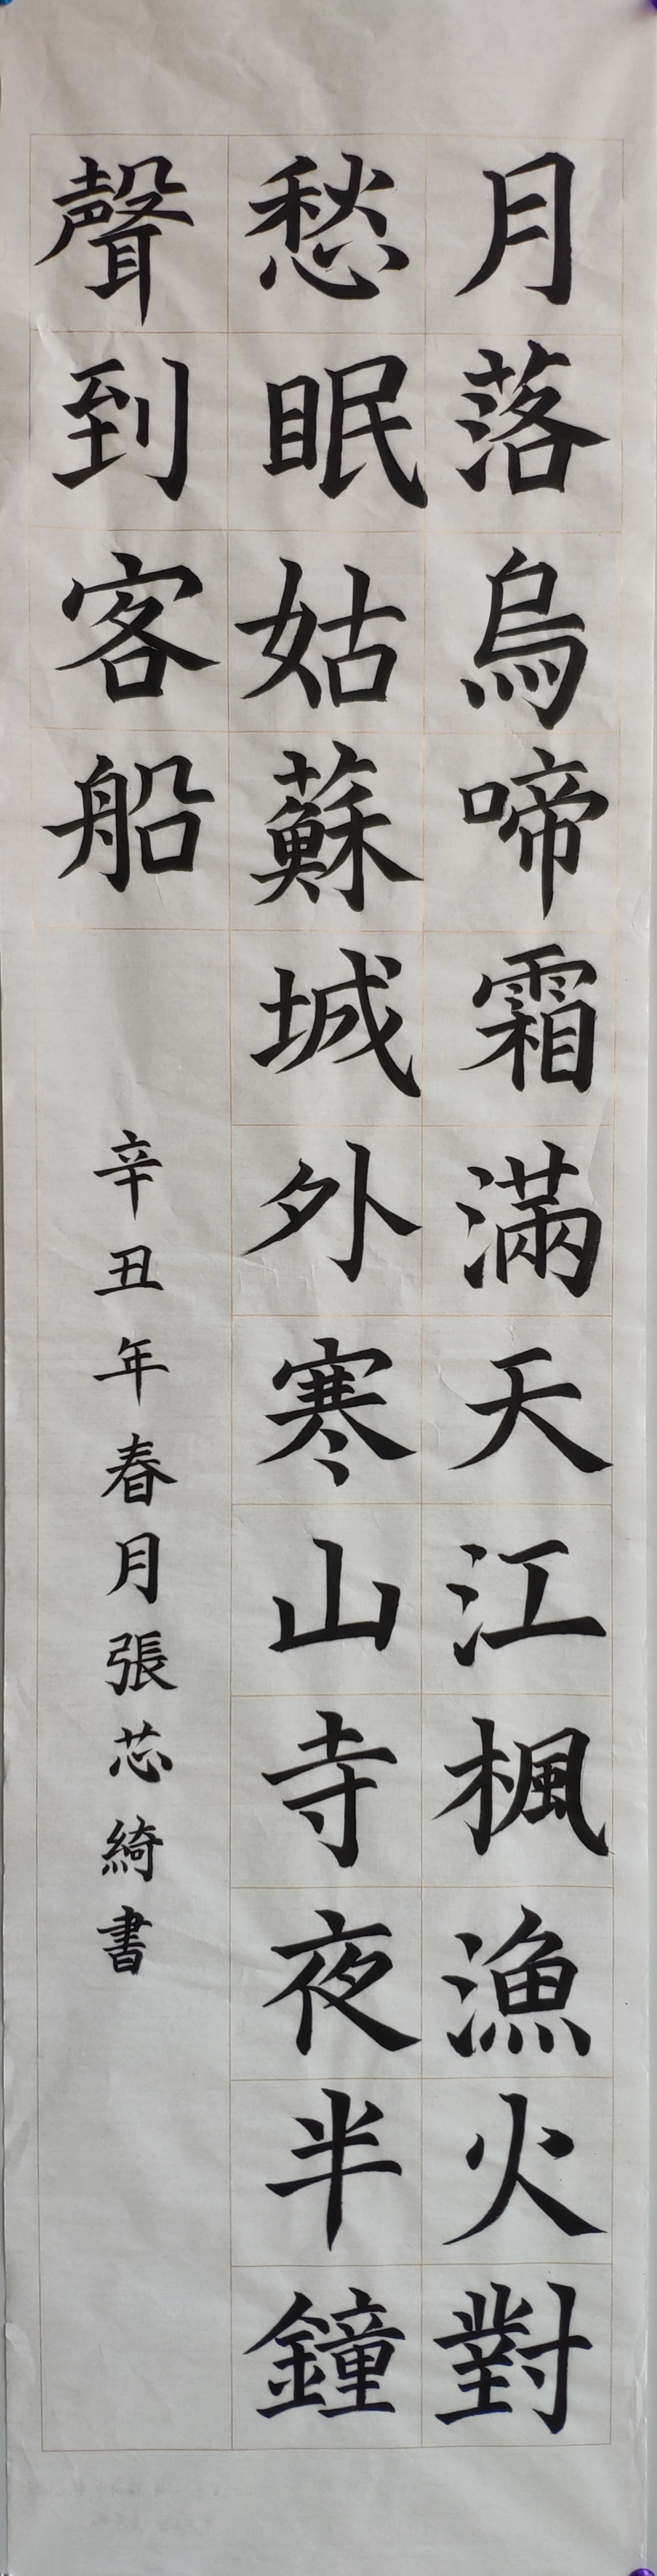 月落烏啼霜滿天江楓漁火對
愁眠姑蘇城外寒山寺夜半鐘
聲到客船
辛丑年春月張芯綺書